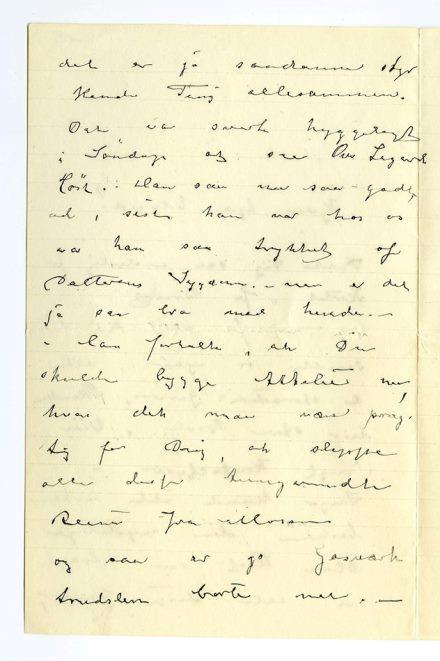 det er jo saadanne styr
kende Ting allesammen.
Det va svært hyggeligt
i Søndags at see Over Læge
Han saa nu saa godt
ud, sidst han var hos os
va han saa trykket af
Datterens Sygdom. – nu er det
jo saa bra med hende. –
– Han fortalte, at Du
skulde bygge Atelié nu,
hvor det maa være prag-
tig for Dig, at slippe
alle disse
fra
og saa er jo Gasværk
Trudslen borte nu. –